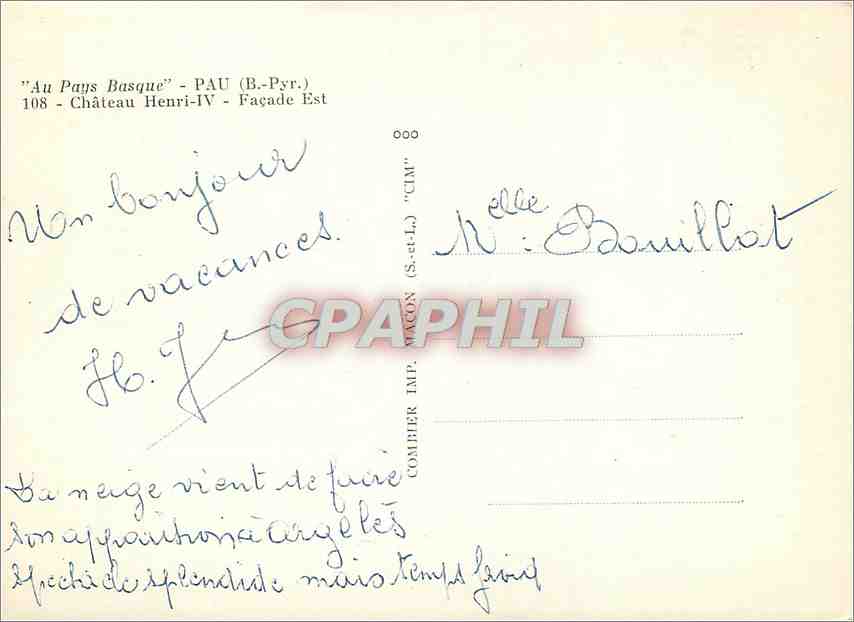 "Au Pays Basque" - PAU (B.-Pyr.)
108 - Château Henri-IV - Façade Est
Un bonjour
de vacances.
H. J
La neige vient de faire
son apparition à Argelès
spectacle splendide mais temps froid
COMBIER IMP. MACON (S.-et-L.) "CIM"
Melle : Bouillot
CPAPHIL